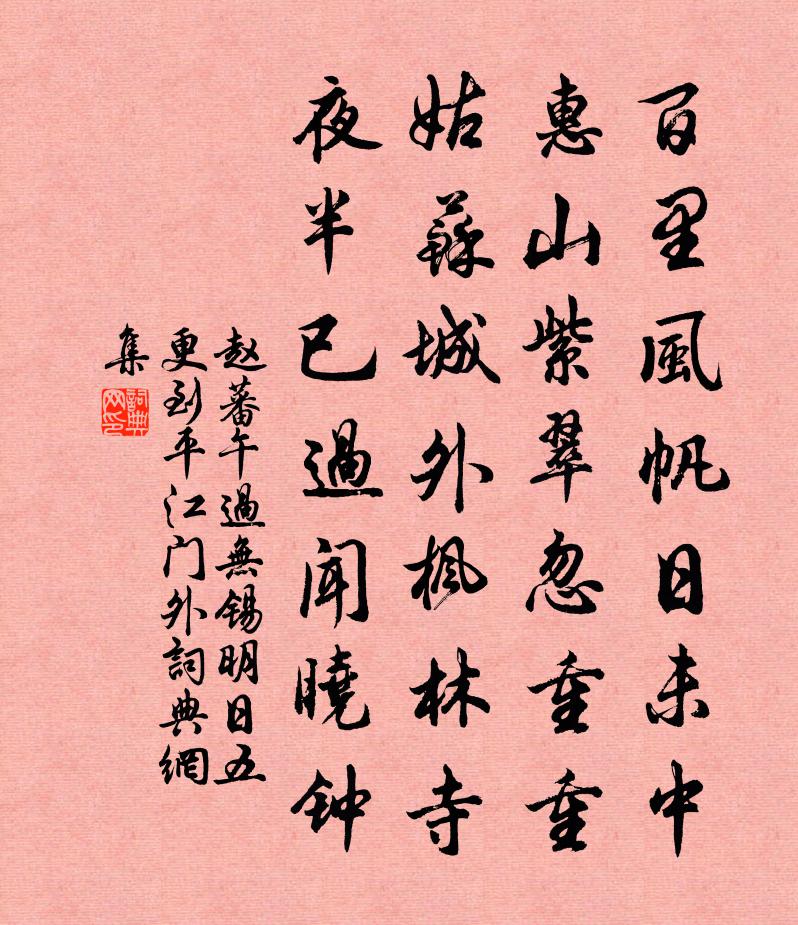 百里風帆日未中
惠山紫翠忽重重
姑蘇城外楓林寺
夜半已過聞曉钟
赵蕃午過無锡明日五
更到平江门外詞典網
集
詞典
网印